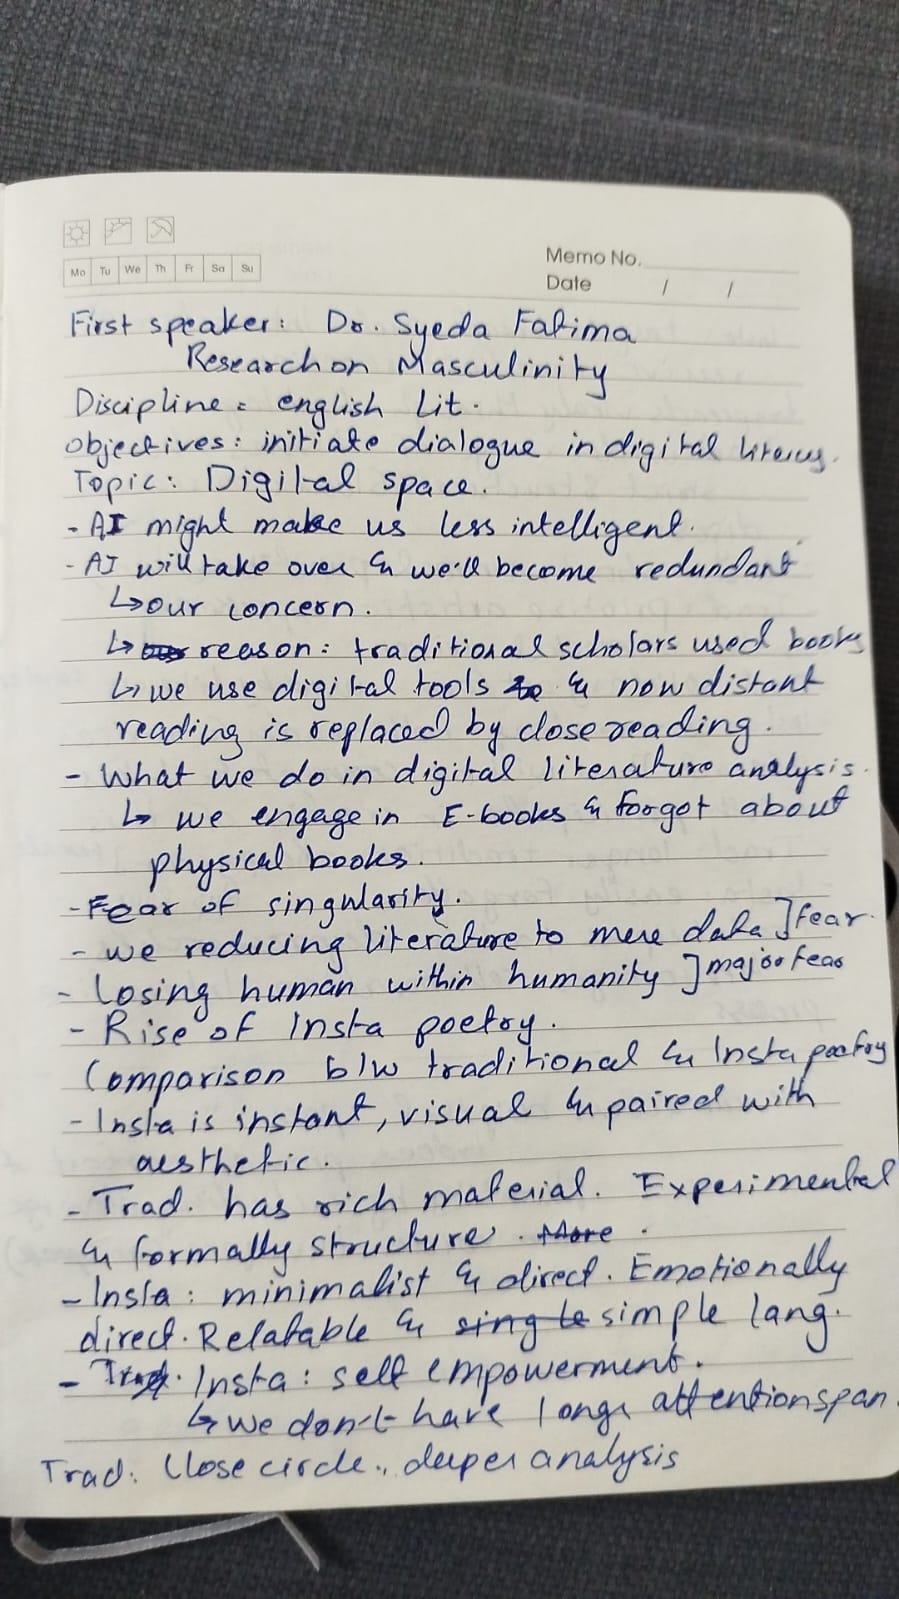 Mo Tu We Th Fr Sa Su
Memo No.
Date / /
First speaker: Dr. Syeda Fatima
Research on Masculinity
Discipline = english Lit.
Objectives: initiate dialogue in digital literacy.
Topic: Digital space.
- AI might make us less intelligent.
- AI will take over & we'll become redundant
↳ our concern.
↳ reason: traditional scholars used books
↳ we use digital tools & now distant
reading is replaced by close reading.
- What we do in digital literature analysis.
↳ we engage in E-books & forgot about
physical books.
- Fear of singularity.
- we reducing literature to mere data ] fear.
- Losing human within humanity ] major fear
- Rise of Insta poetry.
Comparison b/w traditional & Insta poetry
- Insta is instant, visual & paired with
aesthetic.
- Trad. has rich material. Experimental
& formally structure. More.
- Insta: minimalist & direct. Emotionally
direct. Relatable & single simple lang.
- Trad. Insta: self empowerment.
↳ we don't have longe attention span.
Trad: Close circle., deeper analysis